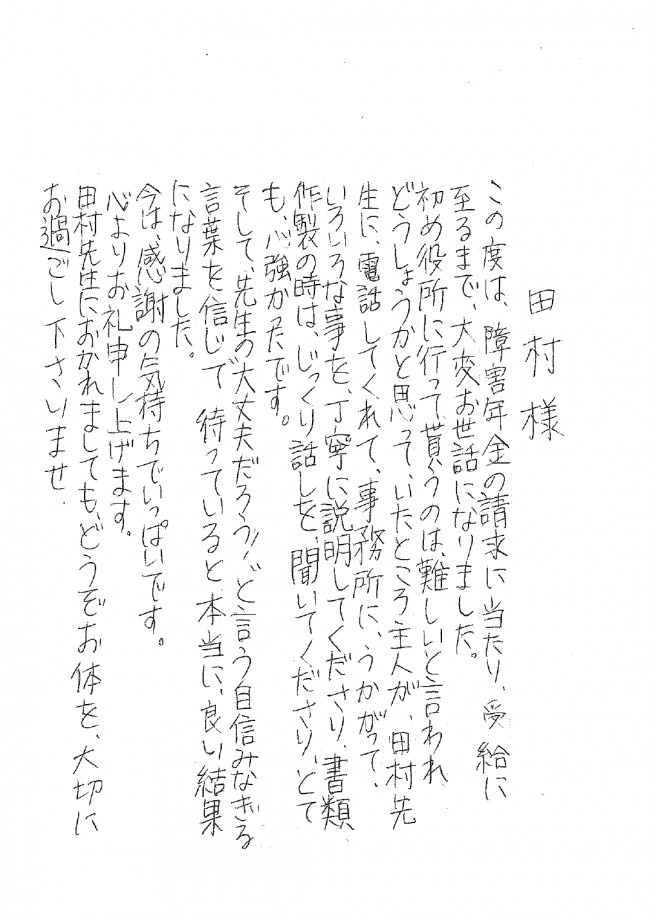 田村様
この度は、障害年金の請求に当たり、受給に
至るまで、大変お世話になりました。
初め役所に行って貰うのは、難しいと言われ
どうしょうかと思って、いたところ主人が、田村先
生に、電話してくれて、事務所に、うかがって、
いろいろな事を、丁寧に説明してくださり、書類
作製の時は、じっくり話しを、聞いてくださり、とて
も、心強かったです。
そして、先生の大丈夫だろう!と言う自信みなぎる
言葉を信じで待っていると本当に、良い結果
になりました。
今は、感謝の気持ちでいっぱいです。
心よりお礼申し上げます。
田村先生におかれましても、どうぞお体を、大切に
お過ごし下さいませ.